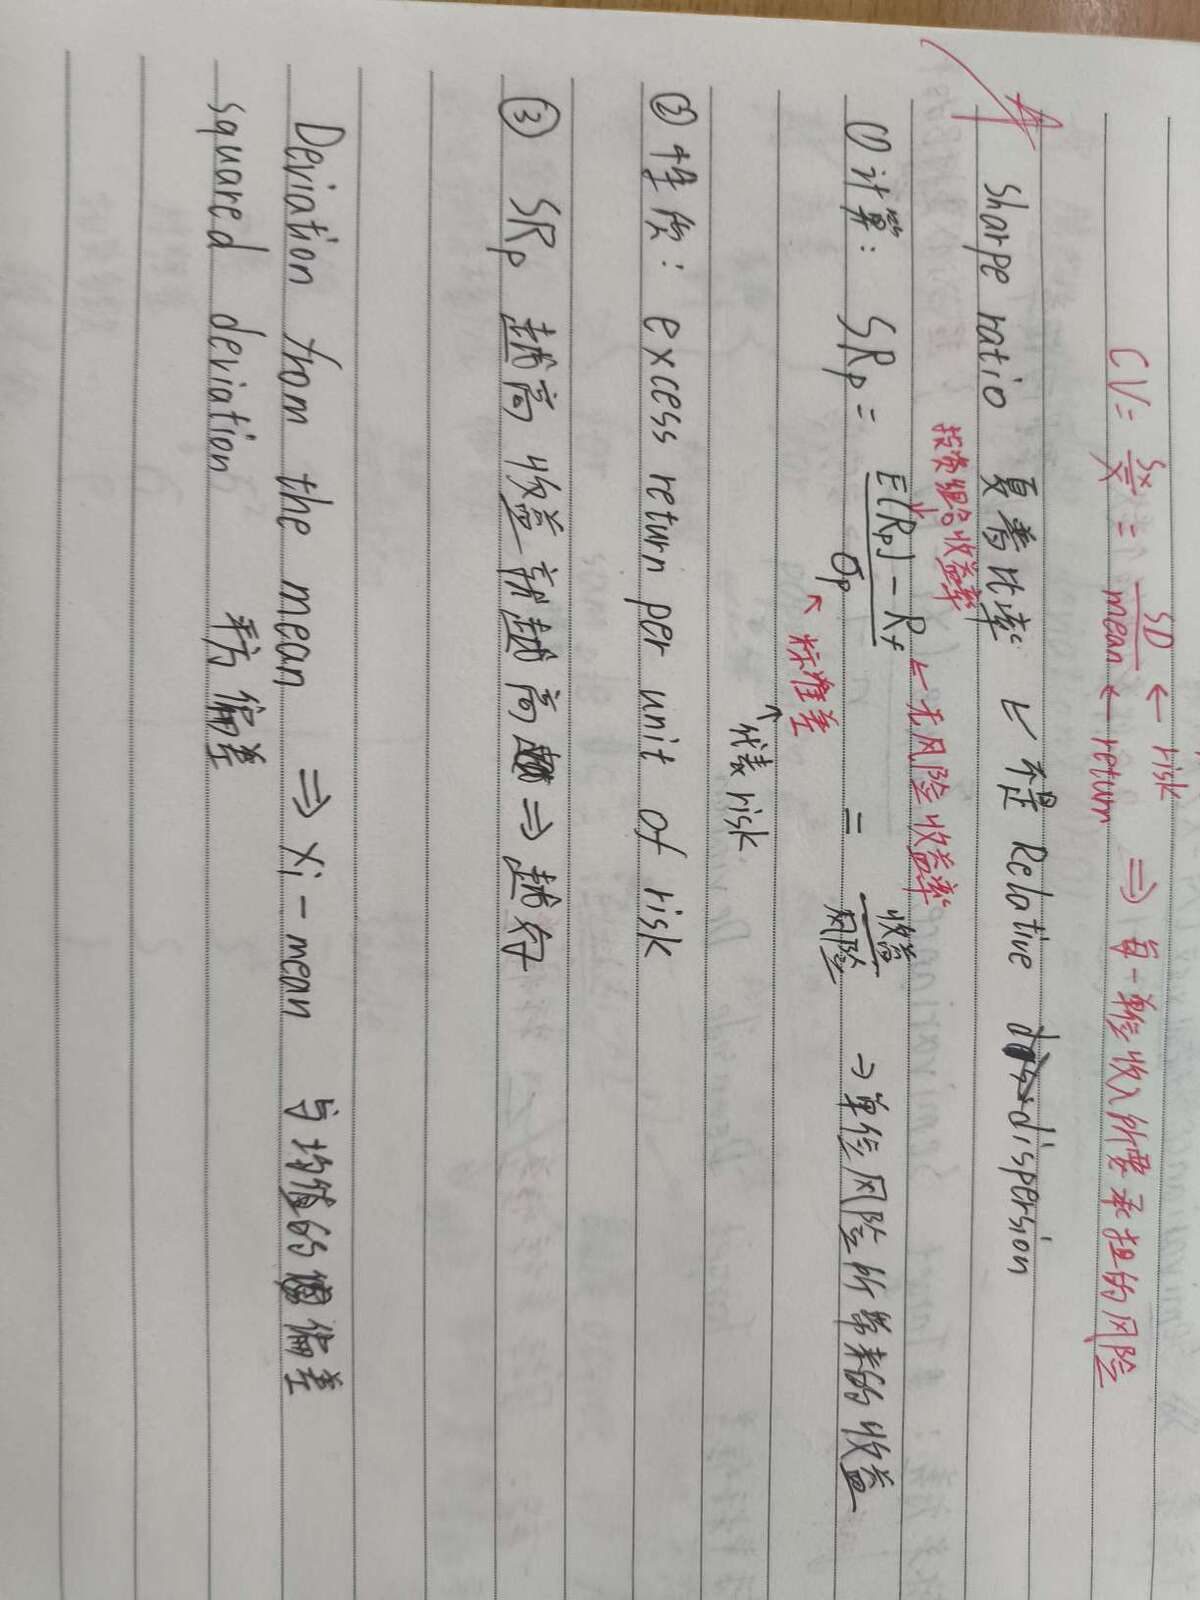 CV = Sx/X̄ = SD/mean ← risk ← return ⇒ 每一单位收入所要承担的风险
Sharpe ratio 夏普比率 ↙ 不是 Relative dispersion
投资组合收益率
① 计算: SRp = E(Rp) - Rf / σp = 收益/风险 → 单位风险所带来的收益
← 无风险收益率
↖ 标准差
↖ 代表 risk
② 性质: excess return per unit of risk
③ SRp 越高 收益就越高 ⇒ 越好
Deviation from the mean ⇒ Xi - mean 与均值的偏差
squared deviation 平方偏差